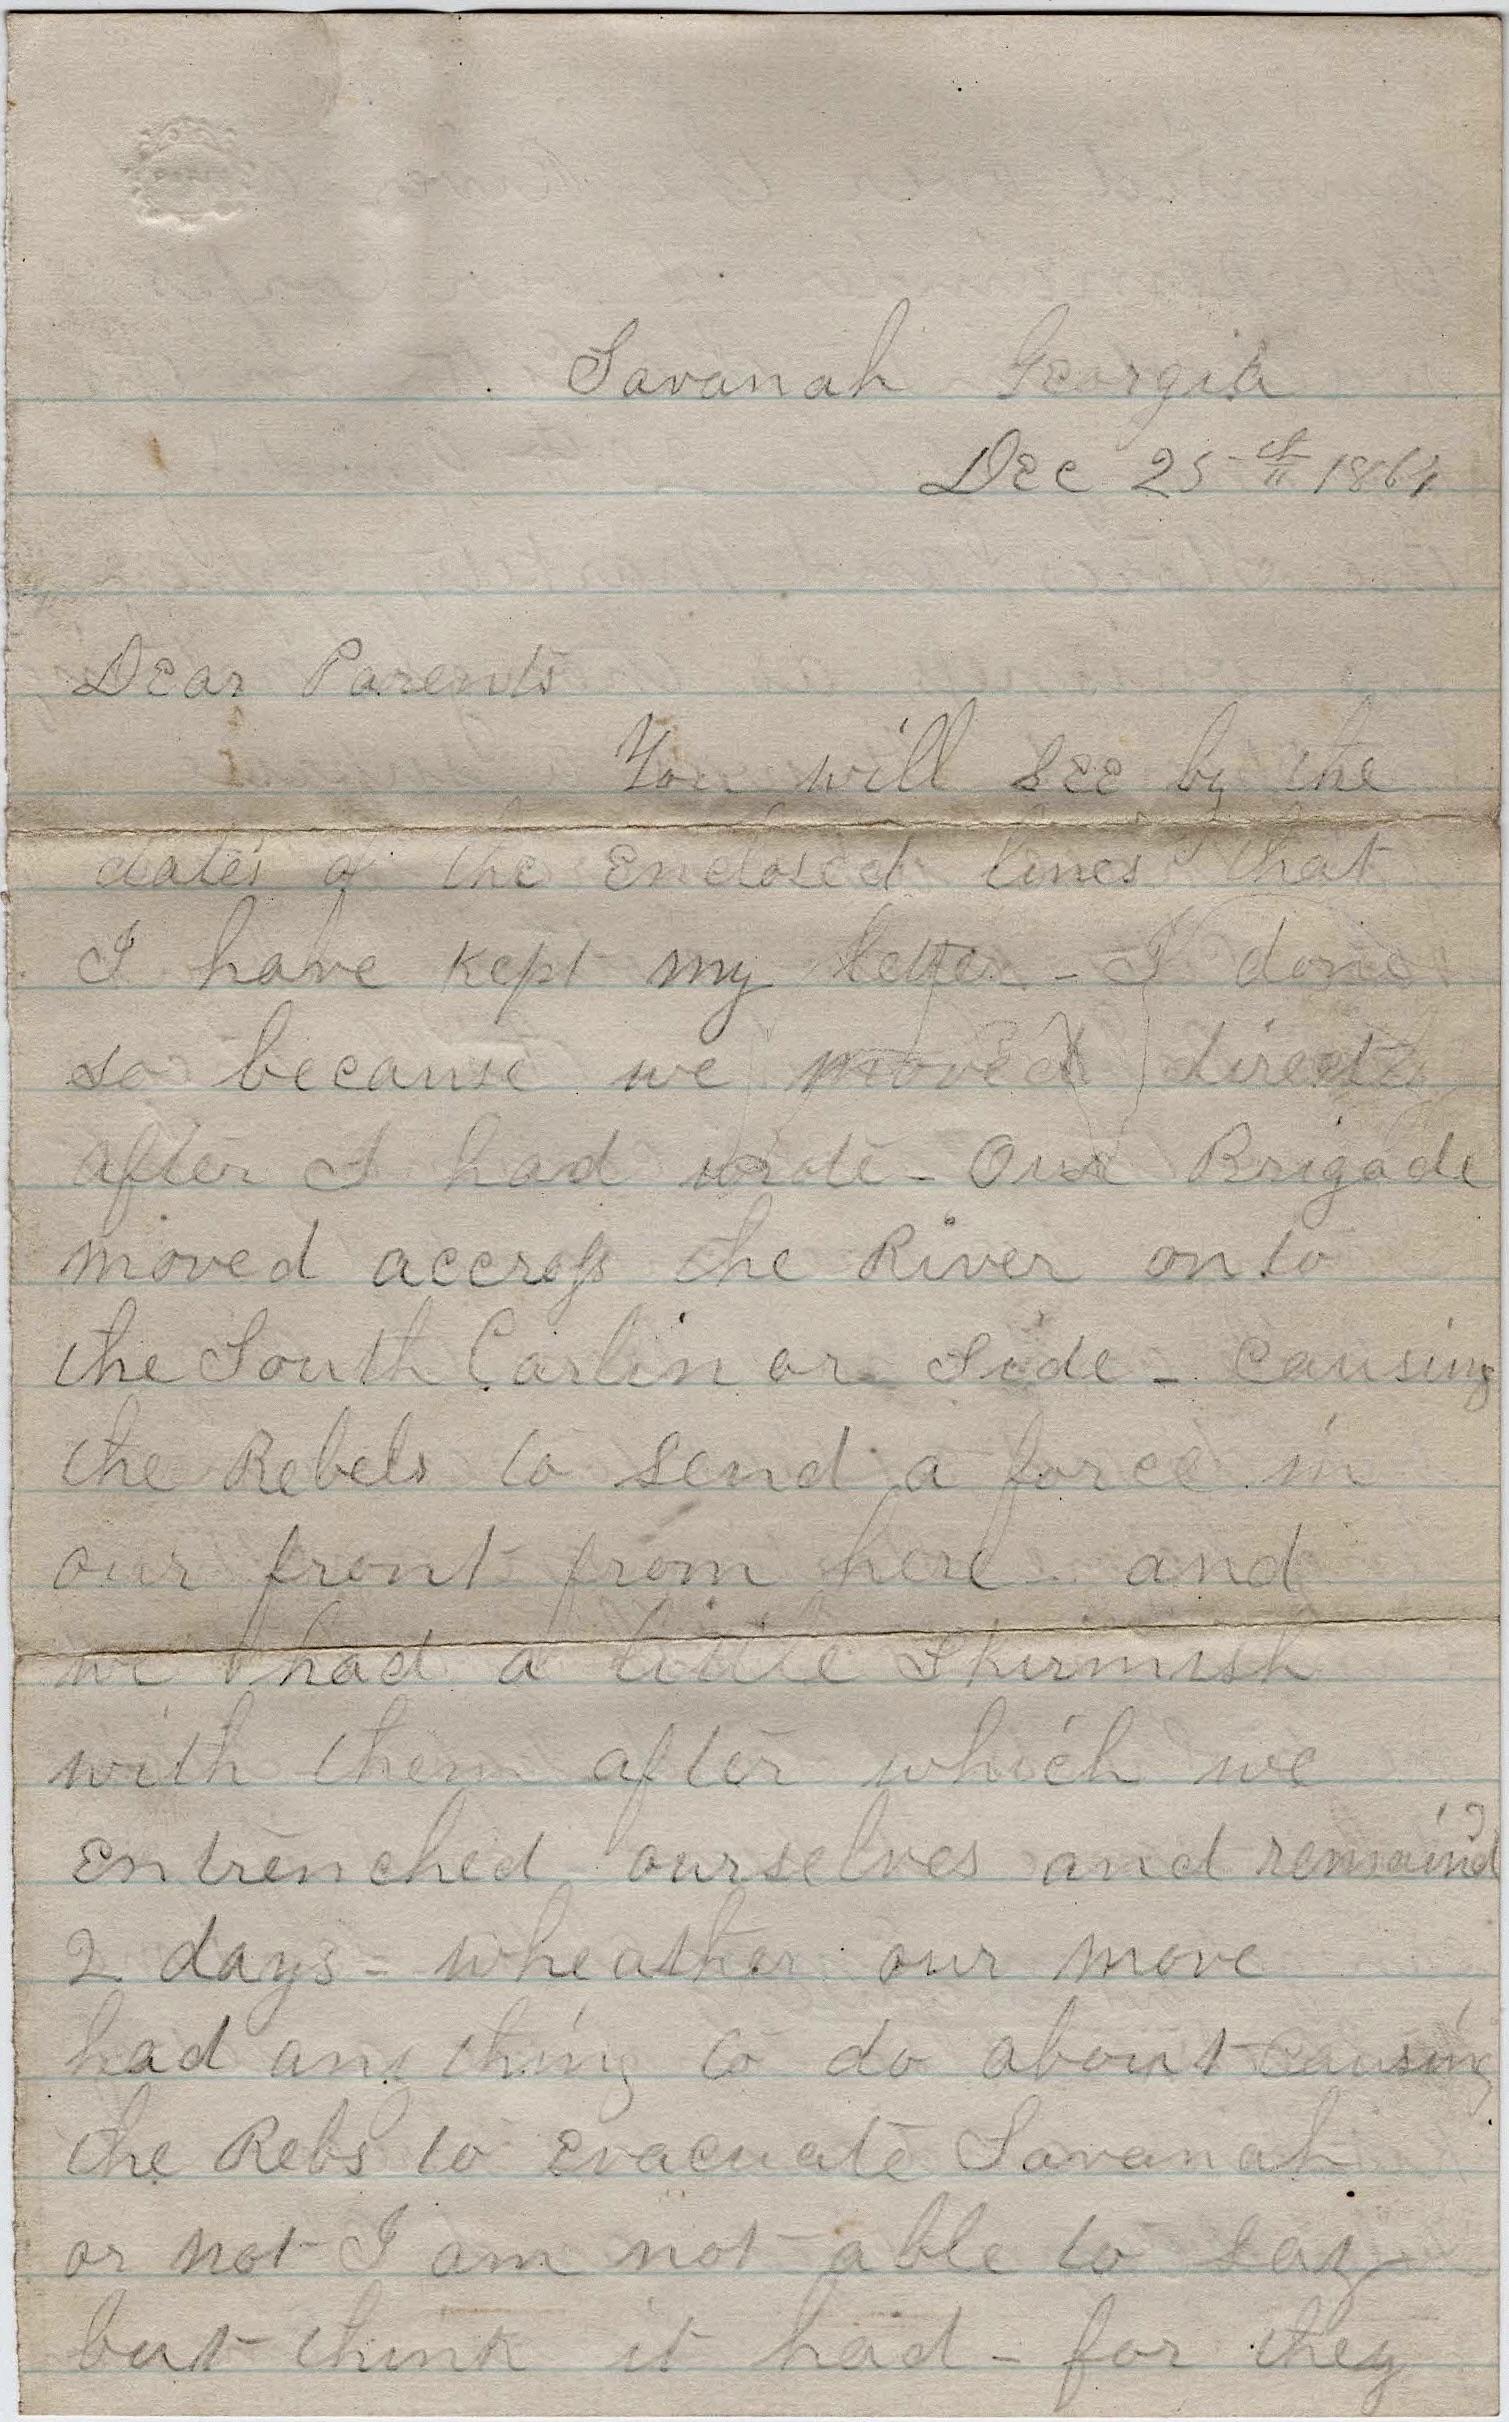 Savanah Georgia
Dec 25th 1864
Dear Parents
You will see by the
dates of the Enclosed lines that
I have kept my letter - I done
so because we moved directly
after I had wrote - Our Brigade
moved accross the River onto
the South Carlin or Side - causing
the Rebels to send a force in
our front from here - and
we had a little Skirmish
with them after which we
Entrenched ourselves and remained
2 days - wheather our move
had any thing to do about causing
the Rebs to Evacuate Savanah
or not I am not able to say
but think it had - for they